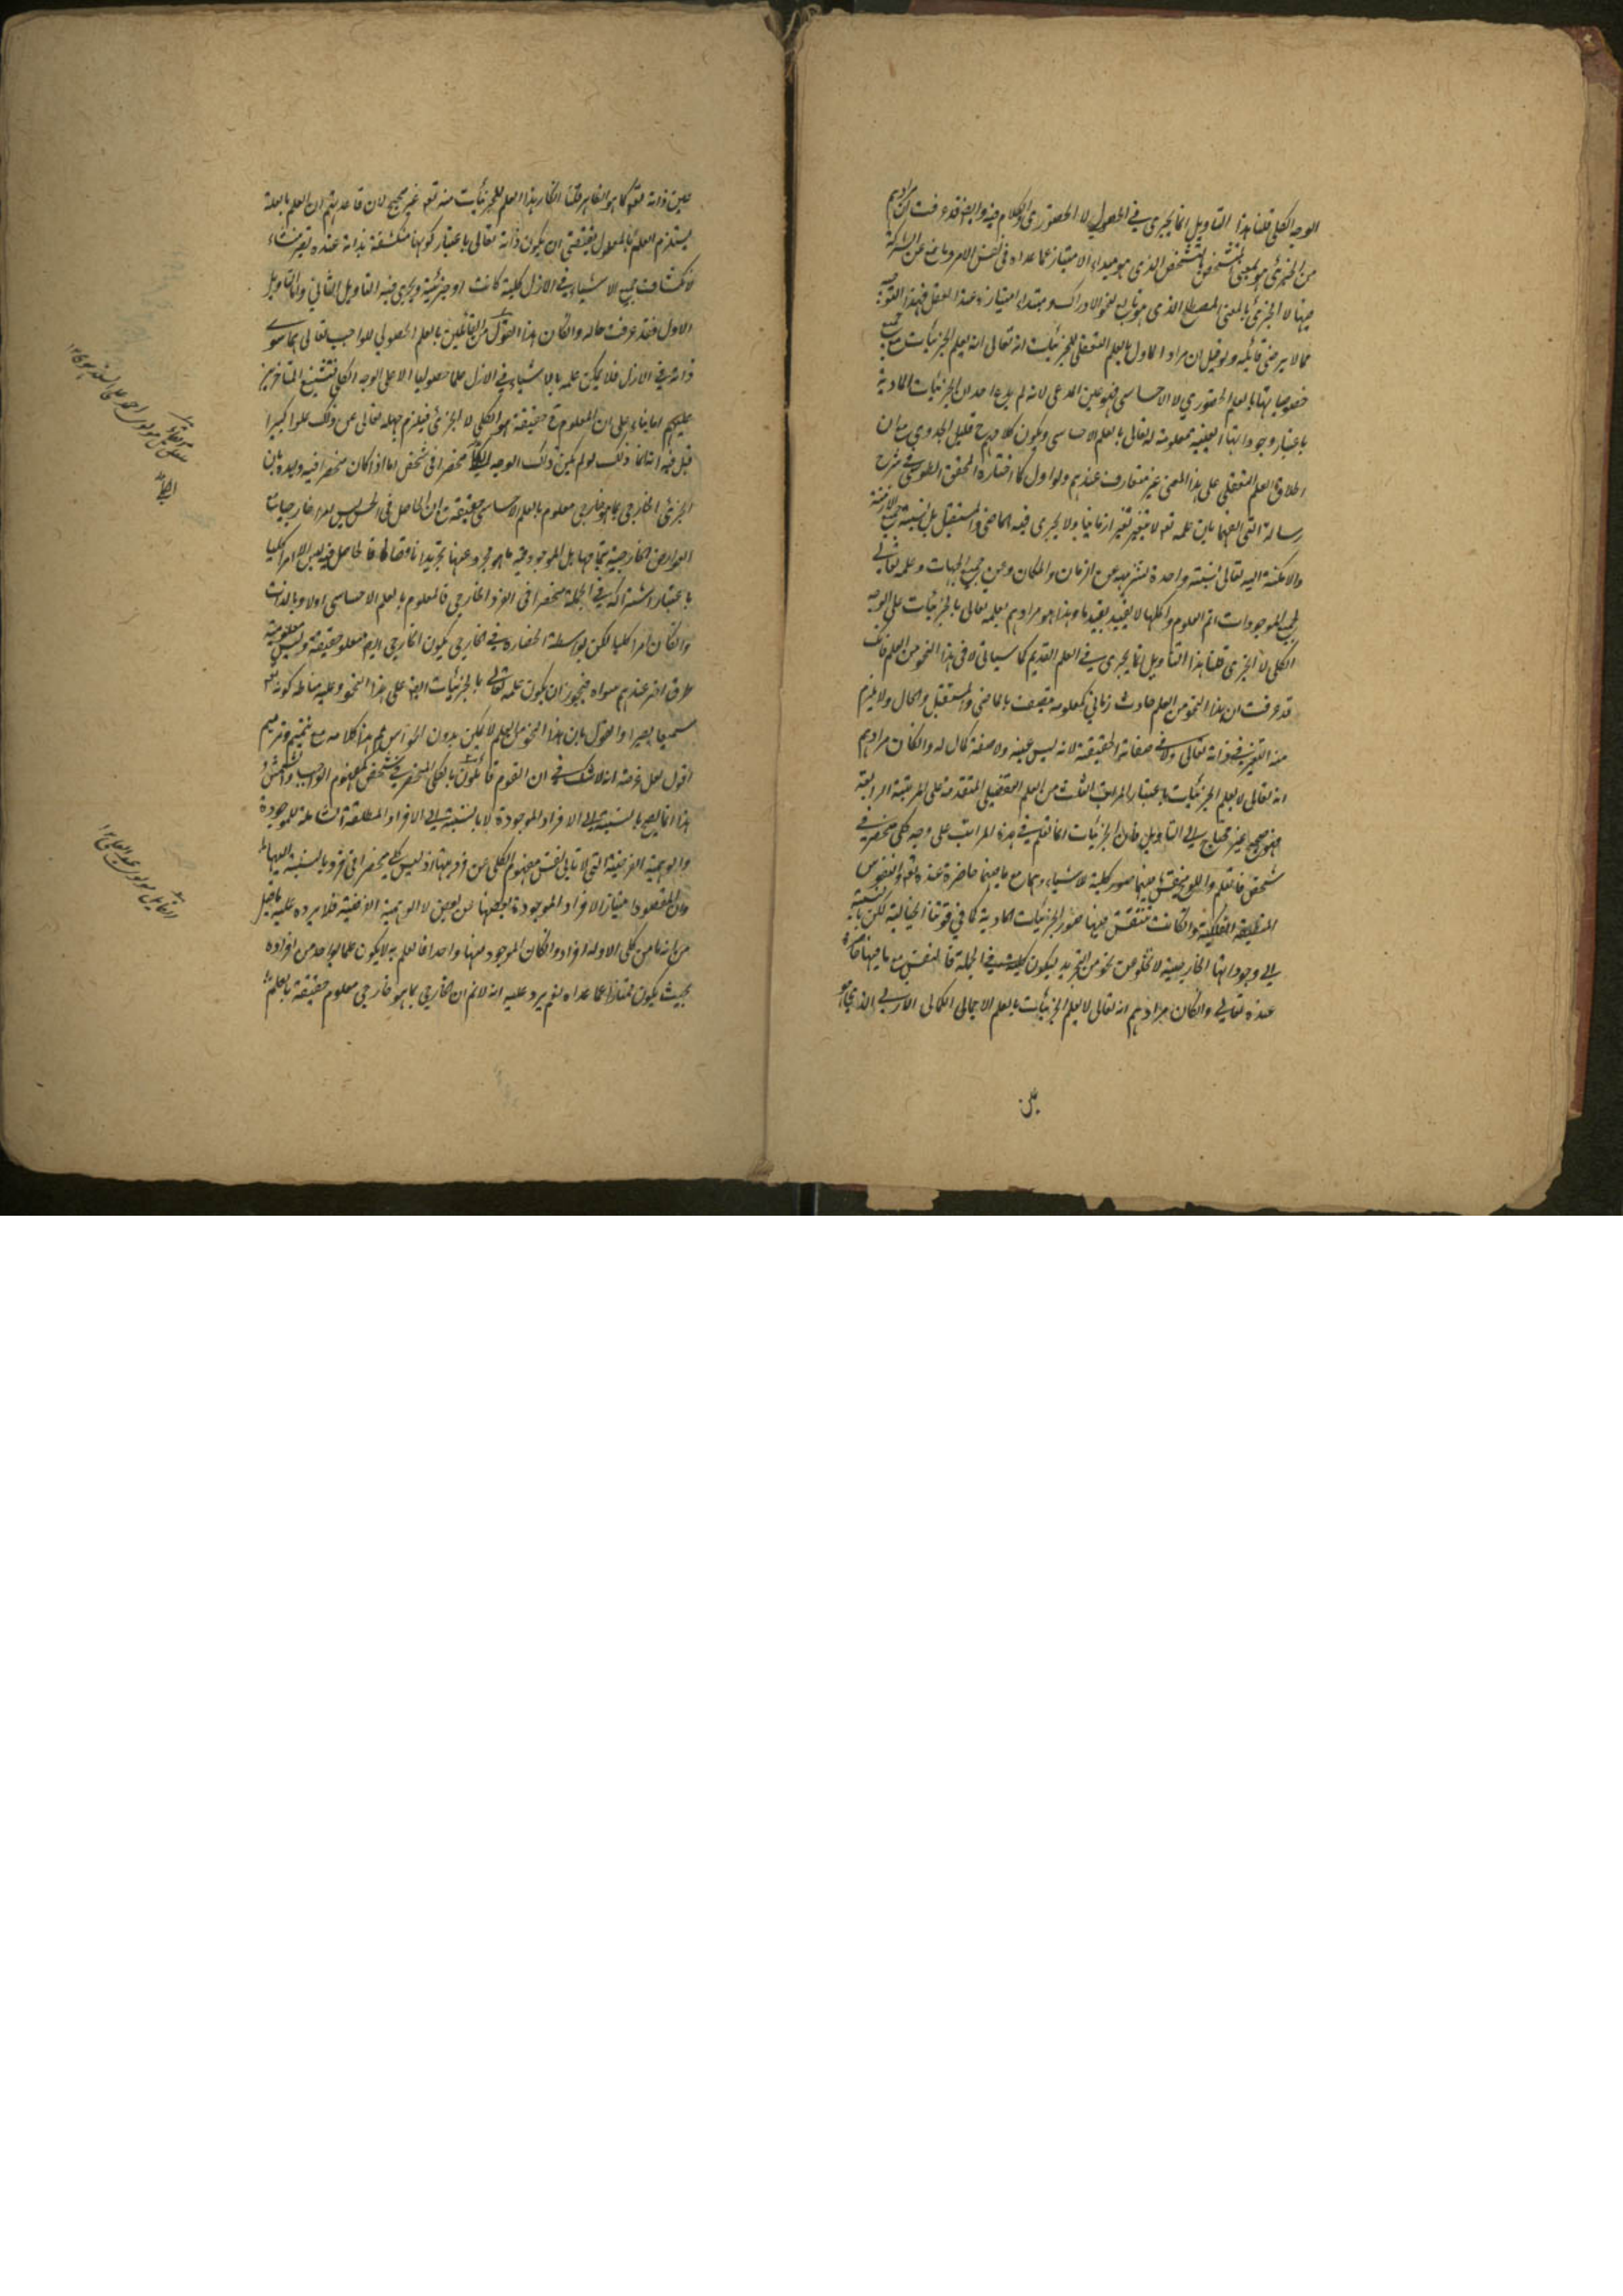 الوجه الكلي قلنا هذا التاويل انما يجري في الحصولي لا الحضوري والكلام فيه وايضا قد عرفت ان مرادهم
من الجزئي هو المعنى المتشخص بالتشخص الذي هو مبداء الامتياز عما عداه في نفس الامر ومانع عن الشركة
فيها لا الجزئي بالمعنى المصطلح الذي هو تابع لنحو الادراك ومبتداء امتيازه عند العقل فهذا التوجيه
مما لا يرضى قائله ولو قيل ان مراد الماول بالعلم التعقلي للجزئيات انه تعالى انه يعلم الجزئيات مع جميع
خصوصياتها بالعلم الحضوري لا الاحساسي فهو عين المدعى لانه لم يدع احد ان الجزئيات المادية
باعتبار وجوداتها العينية معلومة له تعالى بالعلم الاحساسي ويكون كلامه ح قليل الجدوى مع ان
اطلاق العلم التعقلي على هذا المعنى غير متعارف عندهم ولو اول كما اختاره المحقق الطوسي في شرح
رسالة التي الفها بان علمه تعه لا يتغير تغيرا زمانيا ولا يجري فيه الماضي والمستقبل بل نسبة جميع الازمنة
والامكنة اليه تعالى نسبة واحدة لتنزهه عن الزمان والمكان وعن جميع الجهات وعلمه تعالى
لجميع الموجودات اتم العلوم واكملها لا يتقيد بقيد ما وهذا هو مرادهم بعلمه تعالى بالجزئيات على الوجه
الكلي لا الجزئي قلنا هذا التاويل انما يجري في العلم القديم كما سياتي لا في هذا النحو من العلم فانك
قد عرفت ان هذا النحو من العلم حادث زماني كمعلومه يتصف بالماضي والمستقبل والحال ولا يلزم
منه التغير في ذاته تعالى ولا في صفاته الحقيقة لانه ليس عينه ولا صفة كمال له وان كان مرادهم
انه تعالى لا يعلم الجزئيات باعتبار المراتب الثلث من العلم التفصيلي المتقدمة على المرتبة الرابعة
فهو صحيح غير محتاج الى التاويل فان الجزئيات انما تعلم في هذه المراتب على وجه كلي منحصر في
شخص فالقلم واللوح ينتقش فيهما صور كلية للاشياء وهما مع ما فيهما حاضرة عنده تعه والنفوس
المنطبعة الفلكية وان كانت تنتقش فيها صور الجزئيات المادية كما في قوتنا الخيالية لكن بالنسبة
الى وجوداتها الخارجية لا تخلو عن نحو من التجريد ليكون كلية في الجملة فالنفس مع ما فيها حاضرة
عنده تعالى وان كان مرادهم انه تعالى لا يعلم الجزئيات بالعلم الاجمالي الكمالي الازلي الذي هو
عين ذاته تعه كما هو الظاهر قلنا انكار هذا العلم للجزئيات منه تعه غير صحيح لان قاعدتهم ان العلم بالعلة
يستلزم العلم بالمعلول يقتضي ان يكون ذاته تعالى باعتبار كونها منكشفة بذاته عنده تعه منشاء
لانكشافات جميع الاشياء في الازل كلية كانت او جزئية ويجري فيه التاويل الثاني واما التاويل
الاول فقد عرفت حاله وان كان هذا القول من القائلين بالعلم الحصولي للواجب تعالى بما سوى
ذاته في الازل فلا يمكن علمه بالاشياء في الازل علما حصوليا الا على الوجه الكلي فتشنيع المتاخرين
عليهم اما بناء على ان المعلوم ح حقيقة هو الكلي لا الجزئي فيلزم جهله تعالى عن ذلك علوا كبيرا
قيل فيه انه انما ذلك لو لم يكن ذلك الوجه الكلي منحصرا في شخص اما اذا كان منحصرا فيه ويده بان
الجزئي الخارجي بما هو خارجي معلوم بالعلم الاحساسي حقيقة مع ان الحاصل في الحس ليس امرا خارجيا مع
العوارض الخارجية بتمامها بل الموجود فيه ماهو مجرد عنها تجريدا ناقصا فالحاصل فيه ليس الا امرا كليا
باعتبار اشتراكه في الجملة منحصرا في الفرد الخارجي فالمعلوم بالعلم الاحساسي اولا وبالذات
وان كان امرا كليا لكن بواسطة انحصاره في الخارجي يكون الخارجي ايض معلوم حقيقة وليس معلومية
طرق اخر عندهم سواه فيجوز ان يكون علمه تعالى بالجزئيات ايض على هذا النحو وعليه مناط كونه تعه
سميعا بصيرا والقول بان هذا النحو من العلم لا يمكن بدون الحواس مم هذا كلامه مع تتميم وترميم
اقول لعل غرضه انه لا شك في ان القوم قائلون بالكلي المنحصر في شخص كمفهوم الواجب والشمس و
هذا انما يصح بالنسبة الى الافراد الموجودة لا بالنسبة الى الافراد المطلقة الشاملة للموجودة
والوهمية الفرضية التي لا تابى نفس مفهوم الكلي عن فرديتها اذ ليس كلي منحصرا في فرد بالنسبة اليها
وان المقصود امتياز الافراد الموجودة بعضها من بعض لا الوهمية الفرضية فلا يرد عليه ما قيل
من انه ما من كلي الا وله افراد وان كان الموجود منها واحدا فالعلم به لا يكون علما بواحد من افراده
بحيث يكون ممتازا عما عداه نعم يرد عليه انه لا نم ان الخارجي بما هو خارجي معلوم حقيقة بالعلم
عين
مولوى احمد على السنديلوى ١٢
القائل مولوى عبد العلى ١٢